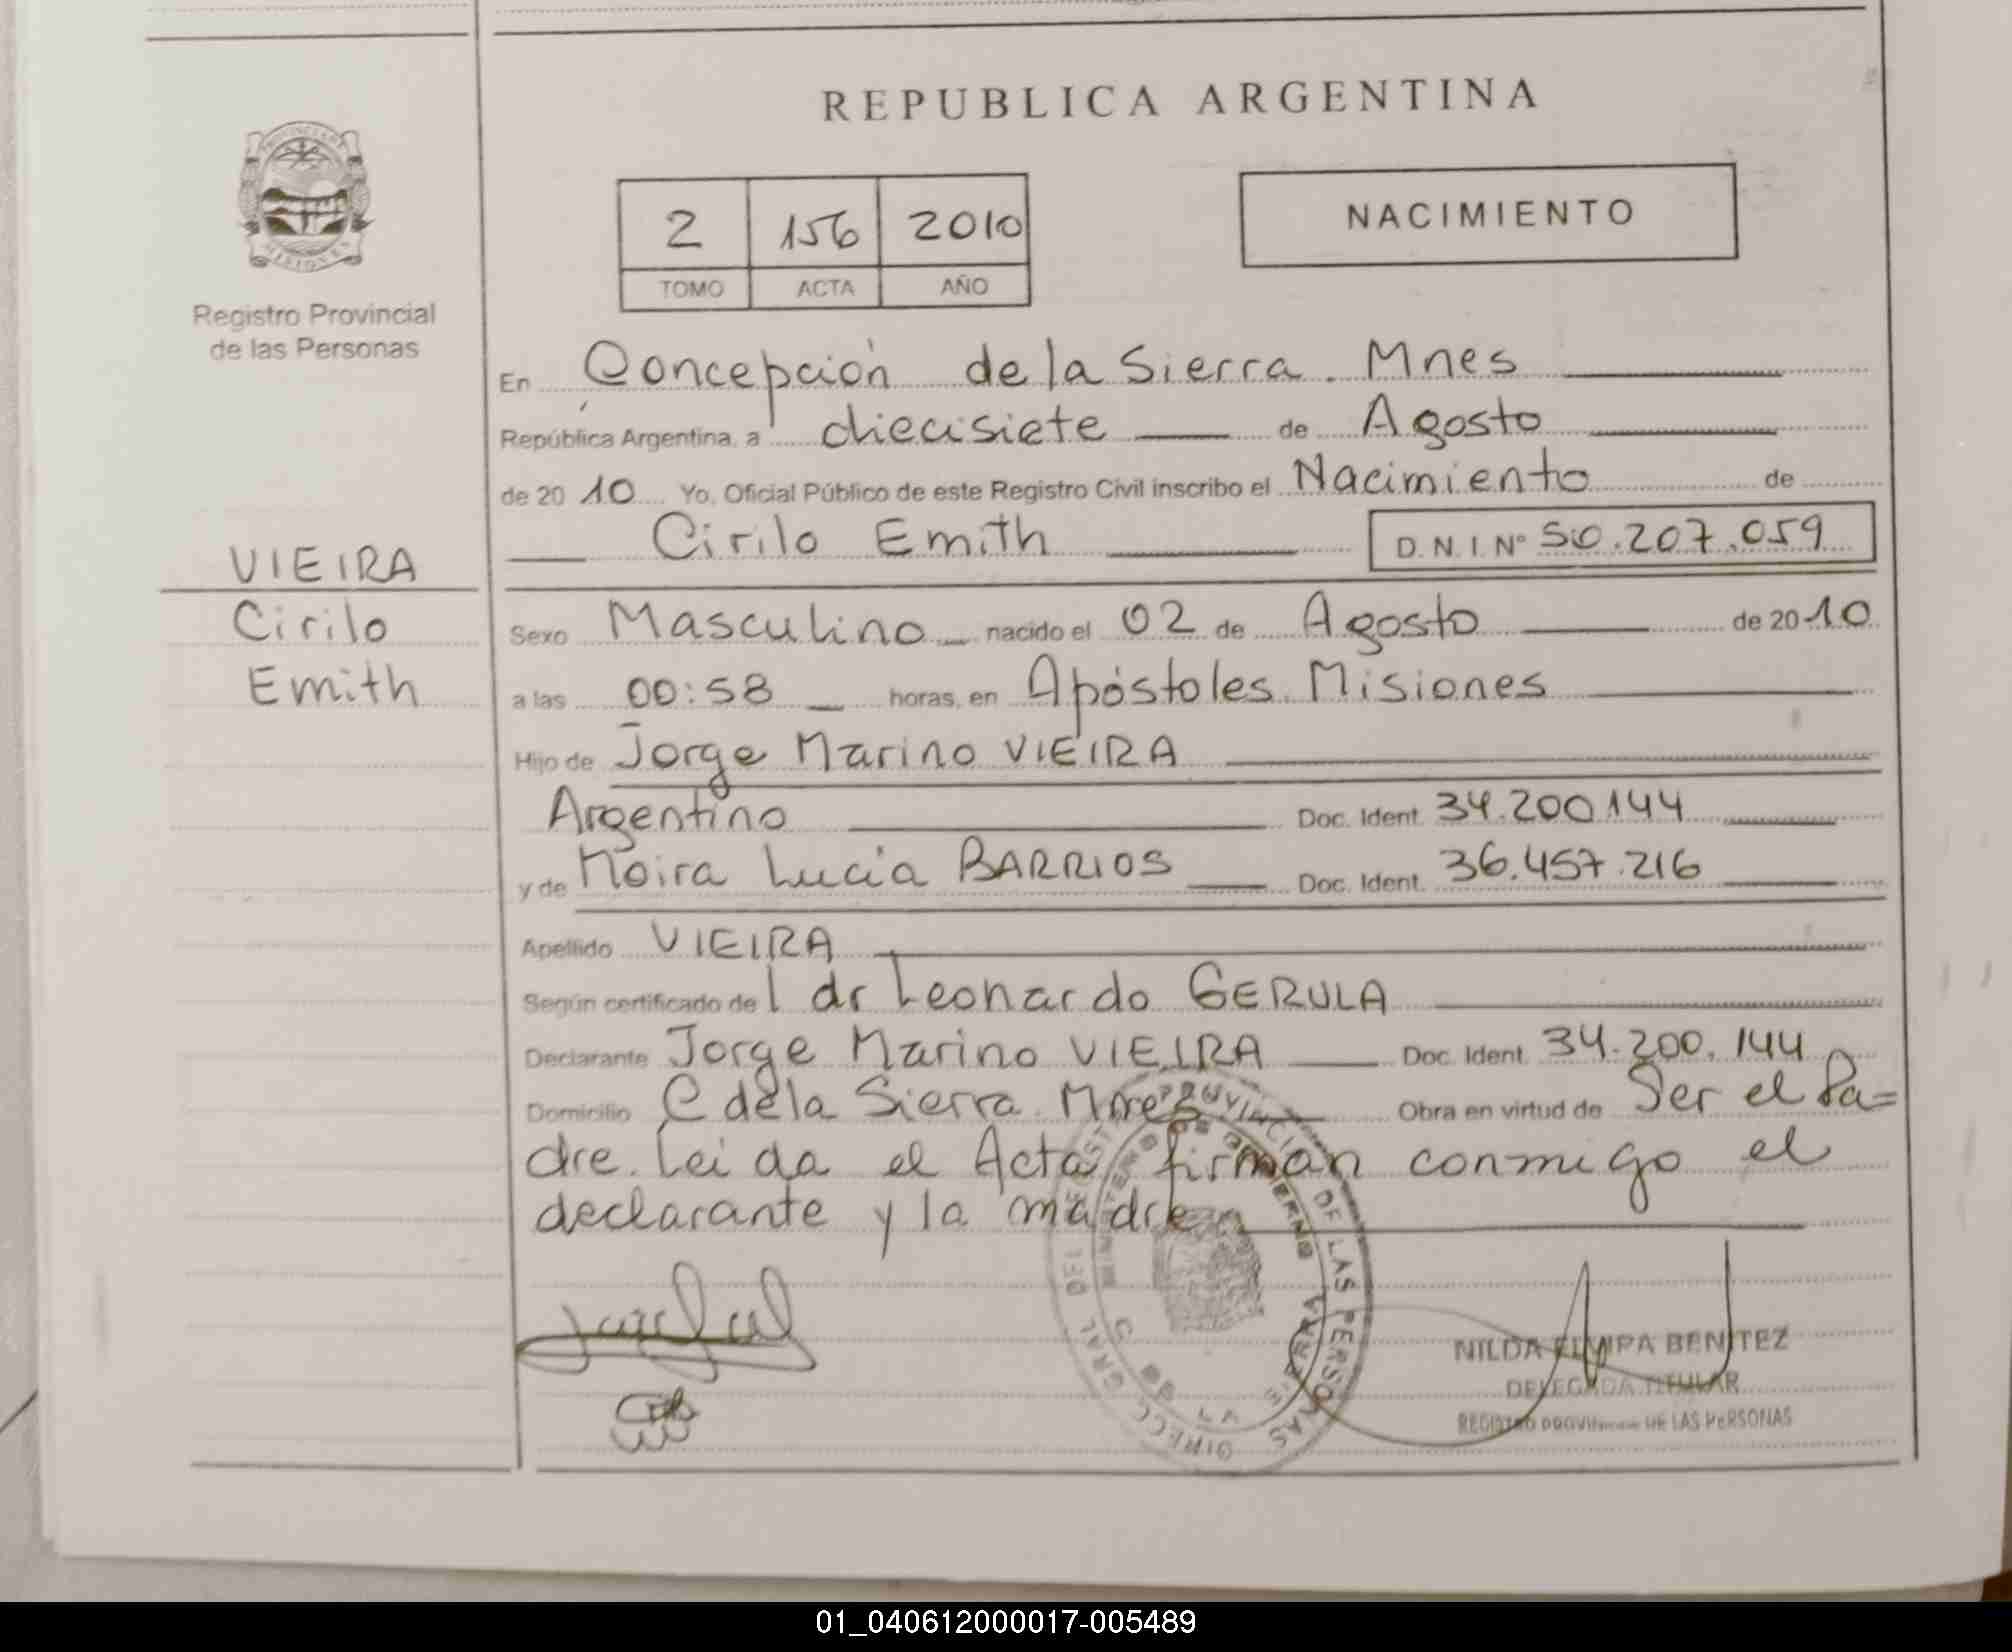 REPUBLICA ARGENTINA
PROVINCIA DE
MISIONES
Registro Provincial
de las Personas
2 156 2010
TOMO ACTA AÑO
NACIMIENTO
En Concepción de la Sierra. Mnes
República Argentina, a diecisiete de Agosto
de 2010 Yo, Oficial Público de este Registro Civil inscribo el Nacimiento de
Cirilo Emith D.N.I. Nº 50.207.059
VIEIRA
Cirilo
Emith
Sexo Masculino nacido el 02 de Agosto de 2010
a las 00:58 horas, en Apóstoles. Misiones
Hijo de Jorge Marino VIEIRA
Argentino Doc. Ident. 34.200.144
y de Moira Lucia BARRIOS Doc. Ident. 36.457.216
Apellido VIEIRA
Según certificado del dr Leonardo GERULA
Declarante Jorge Marino VIEIRA Doc. Ident. 34.200.144
Domicilio C de la Sierra Mnes Obra en virtud de Ser el Pa=
dre. Leida el Acta firman conmigo el
declarante y la madre
DIRECC GRAL DEL REGIST PROVINCIAL DE LAS PERSONAS
MINISTERIO DE GOBIERNO
C DE LA SIERRA
NILDA ELVIRA BENITEZ
DELEGADA TITULAR
REGISTRO PROVINCIAL DE LAS PERSONAS
01_040612000017-005489